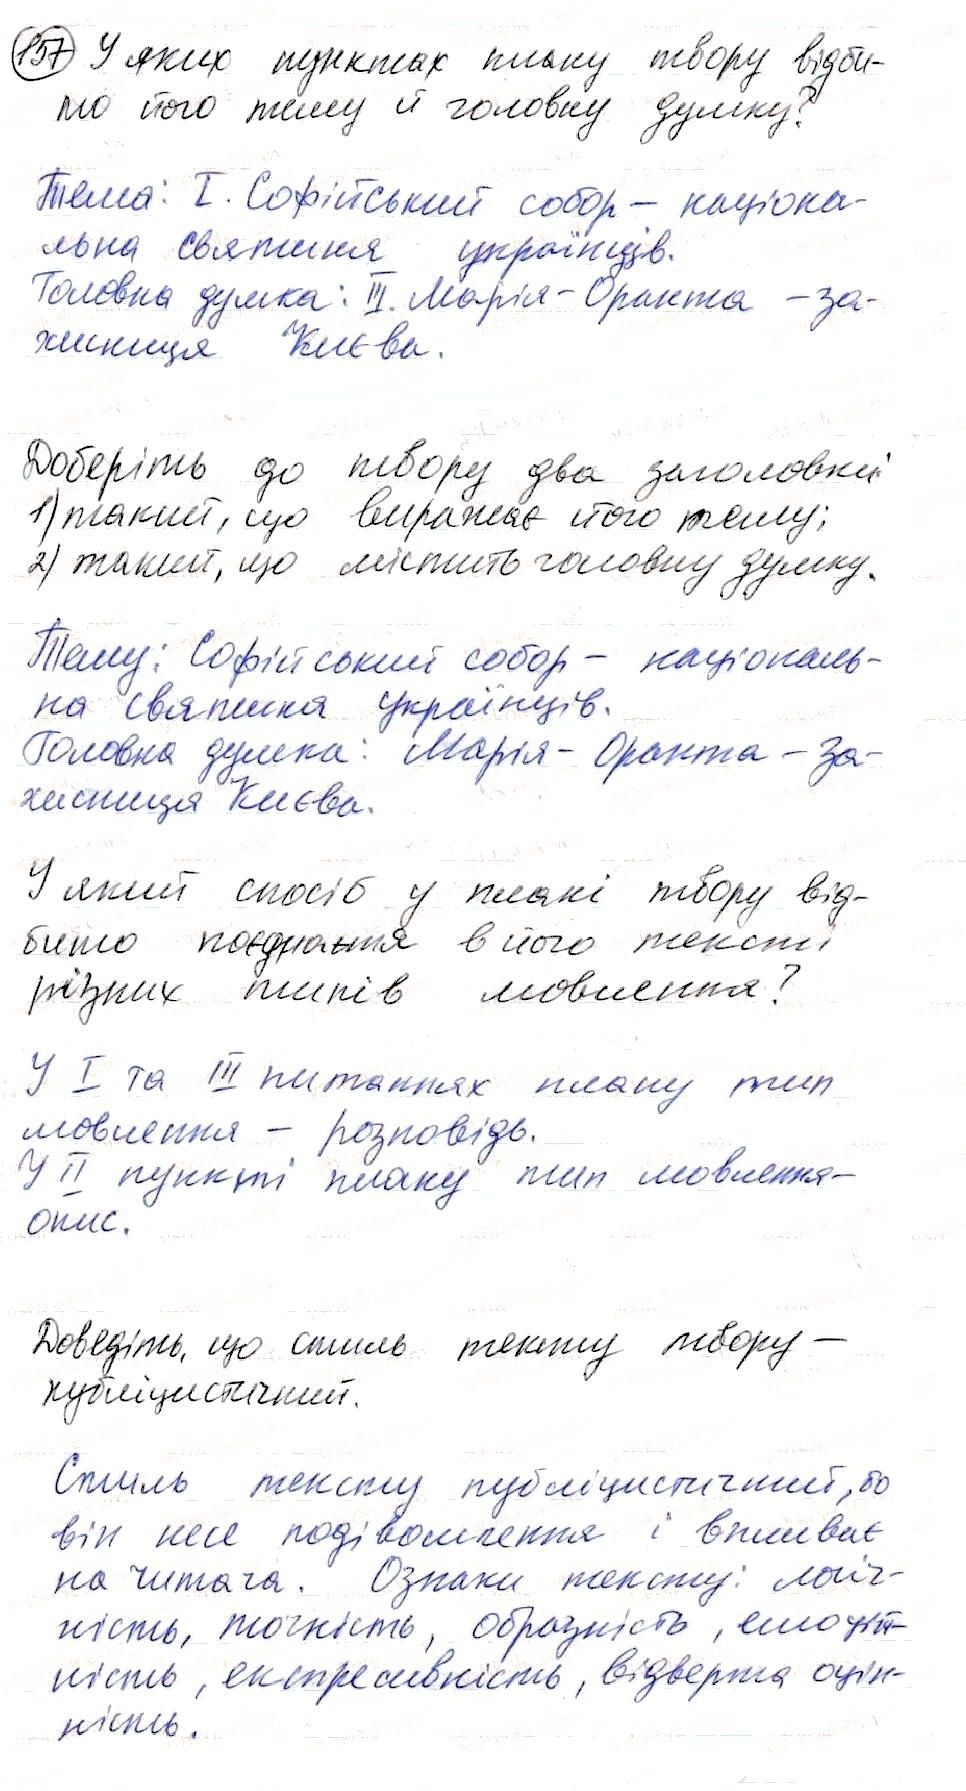 157 У яких пунктах плану твору відби-
то його тему й головну думку?
Тема: I. Софійський собор – націона-
льна святиня українців.
Головна думка: III. Марія-Оранта – за-
хисниця Києва.
Доберіть до твору два заголовки
1) такий, що виражає його тему;
2) такий, що містить головну думку.
Тему: Софійський собор – національ-
на святиня українців.
Головна думка: Марія-Оранта – за-
хисниця Києва.
У який спосіб у плані твору від-
бито поєднання в його тексті
різних типів мовлення?
У I та III питаннях плану тип
мовлення – розповідь.
У II пункті плану тип мовлення –
опис.
Доведіть, що стиль тексту твору –
публіцистичний.
Стиль тексту публіцистичний, бо
він несе подівомлення і впливає
на читача. Ознаки тексту: логіч-
ність, точність, образність, емоцій-
ність, експресивність, відверта оцін-
ність.